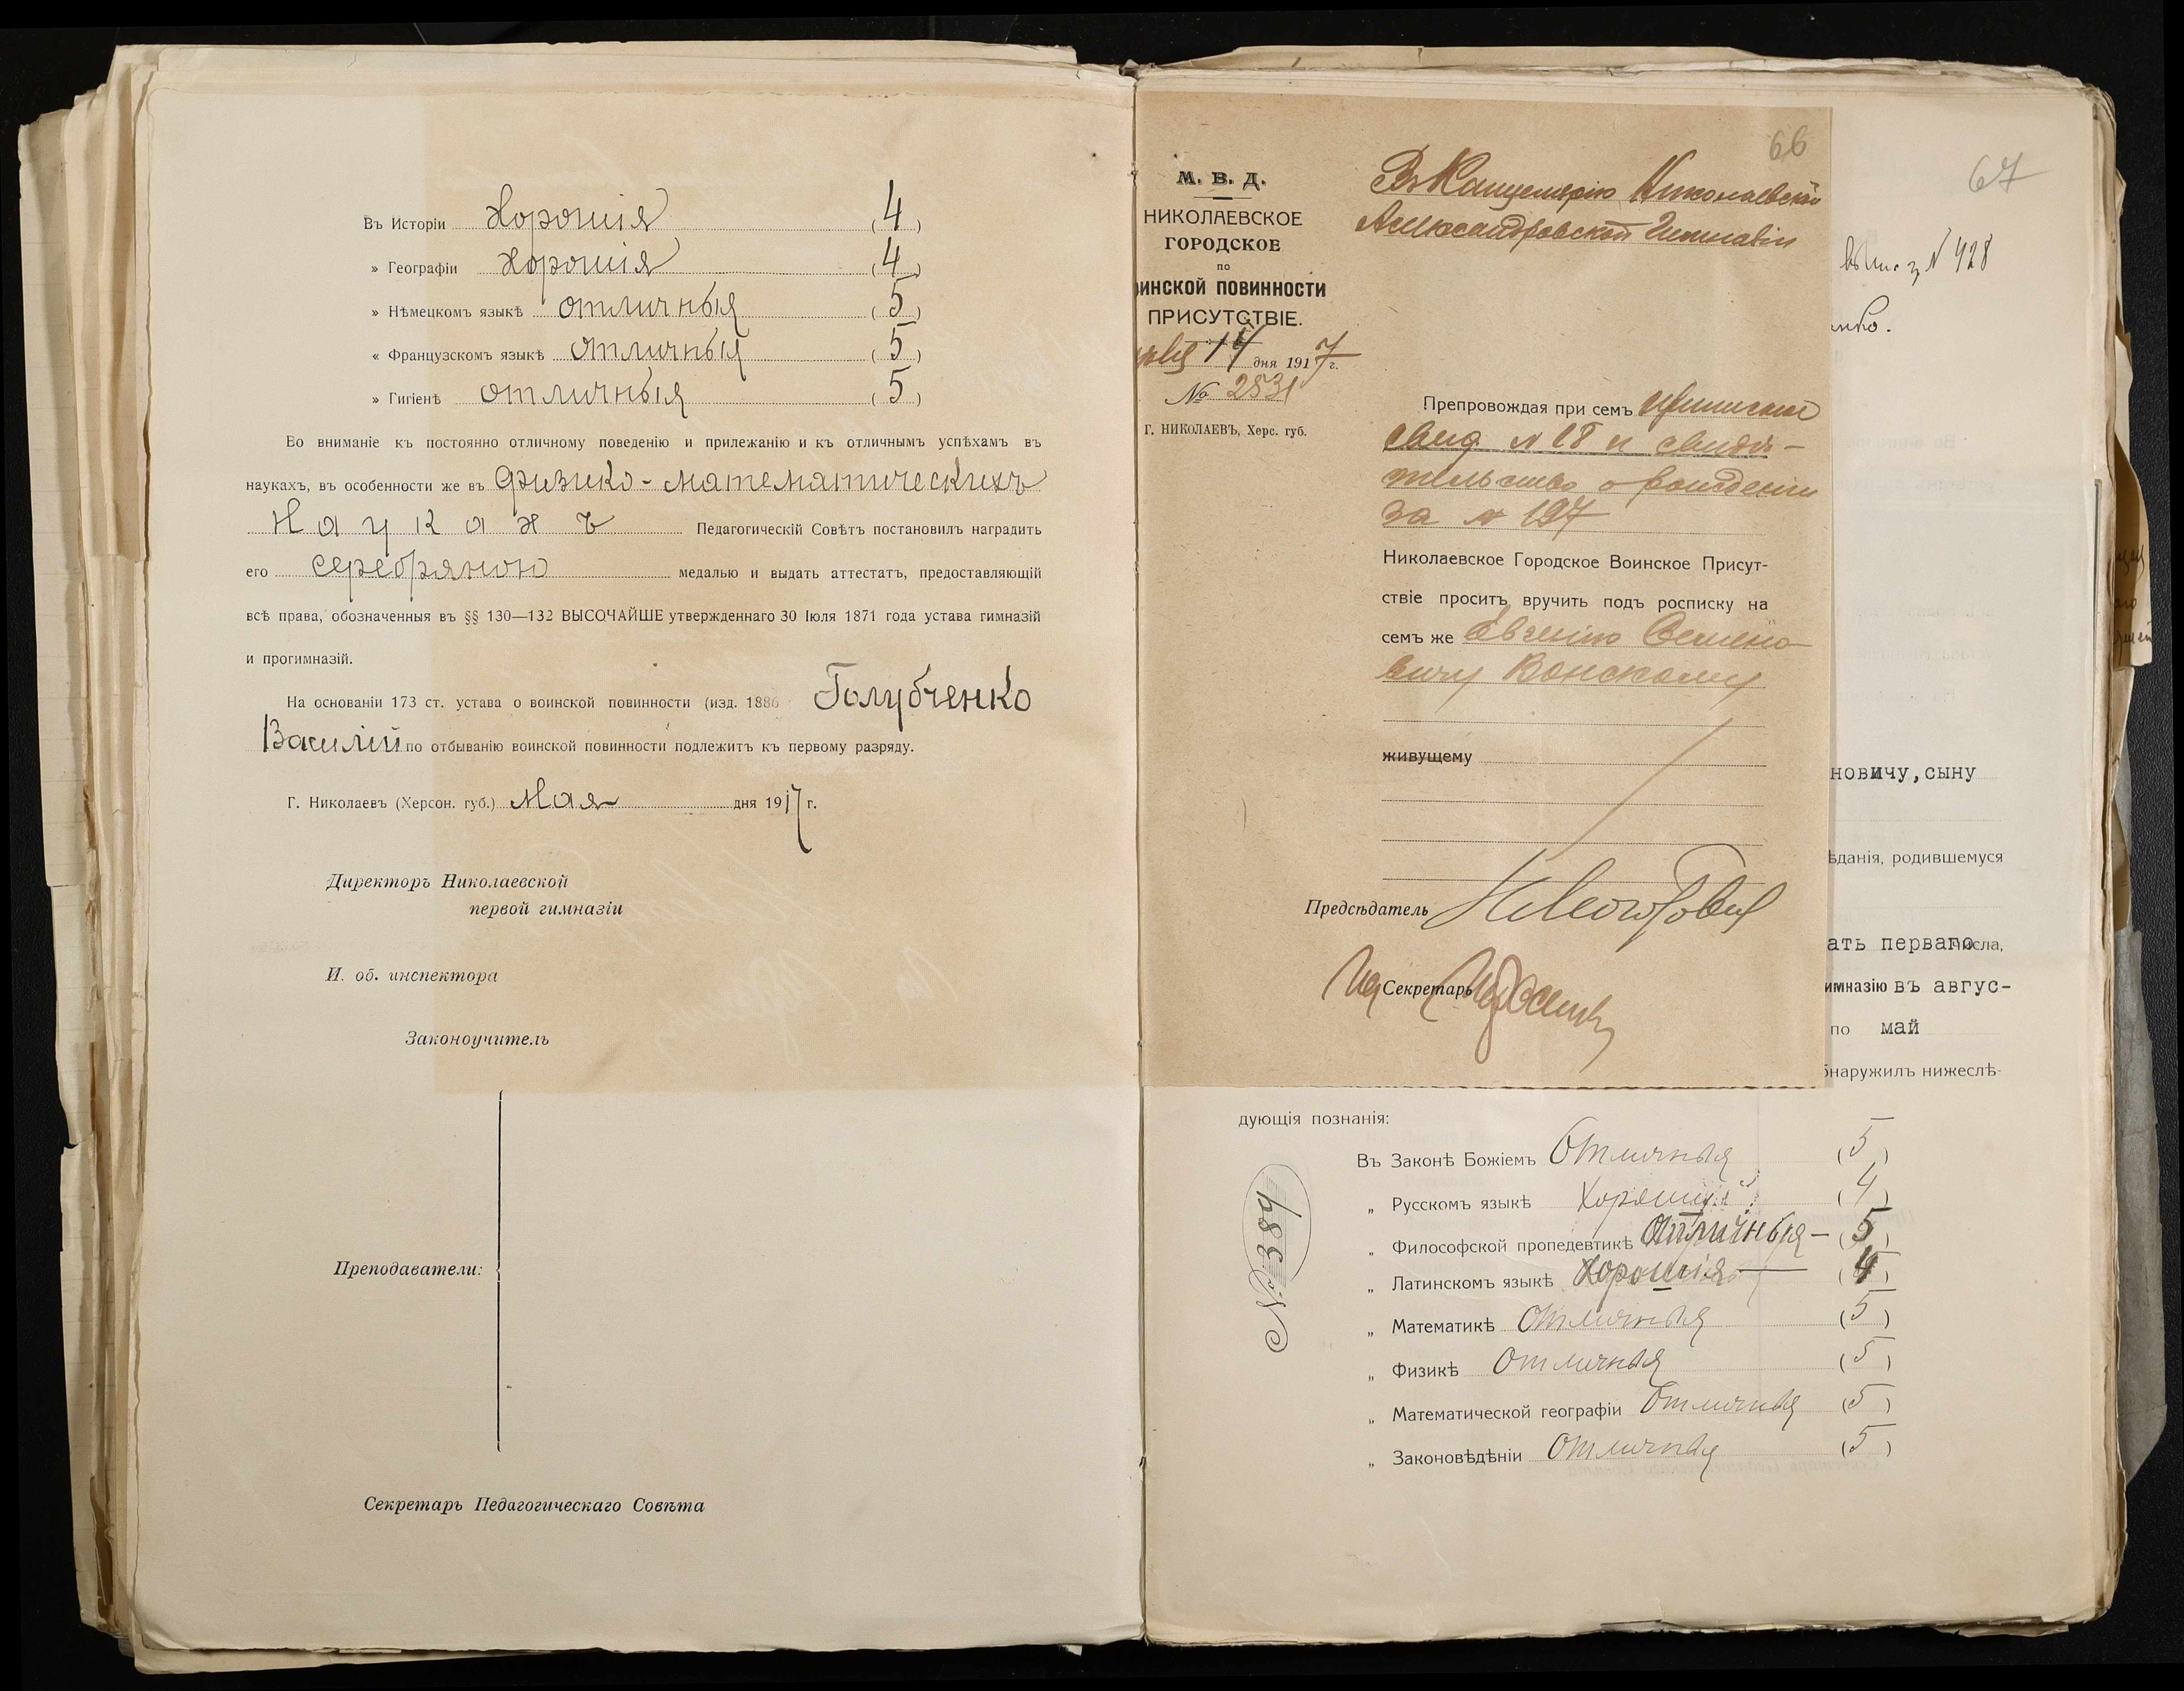 Въ Исторіи хорошія (4)
» Географіи хорошія (4)
» Нѣмецкомъ языкѣ отличныя (5)
« Французскомъ языкѣ отличныя (5)
» Гигіенѣ отличныя (5)
Во вниманіе къ постоянно отличному поведенію и прилежанію и къ отличнымъ успѣхамъ въ
наукахъ, въ особенности же въ физико-математическихъ
наукахъ Педагогическій Совѣтъ постановилъ наградить
его серебряною медалью и выдать аттестатъ, предоставляющій
всѣ права, обозначенныя въ §§ 130—132 ВЫСОЧАЙШЕ утвержденнаго 30 Іюля 1871 года устава гимназій
и прогимназій.
На основаніи 173 ст. устава о воинской повинности (изд. 1886 Голубченко
Василій по отбыванію воинской повинности подлежитъ къ первому разряду.
Г. Николаевъ (Херсон. губ.) мая дня 1917 г.
Директоръ Николаевской
первой гимназіи
И. об. инспектора
Законоучитель
Преподаватели:
Секретарь Педагогическаго Совѣта
66
М. В. Д.
НИКОЛАЕВСКОЕ
ГОРОДСКОЕ
по
инской повинности
ПРИСУТСТВІЕ.
14 дня 1917 г.
№ 2531
Г. НИКОЛАЕВЪ, Херс. губ.
Въ Канцелярію Николаевской
Александровской Гимназіи
Препровождая при семъ
свид. № 18 и свидѣ-
тельство о рожденіи
за № 197
Николаевское Городское Воинское Присут-
ствіе проситъ вручить подъ росписку на
семъ же Евгенію Семено-
вичу Конскому
живущему
Предсѣдатель
Секретарь
67
№ 428
нко.
новичу, сыну
ѣданія, родившемуся
ать перваго числа,
имназію въ авгус-
по май
бнаружилъ нижеслѣ-
дующія познанія:
№ 389
Въ Законѣ Божіемъ Отличныя (5)
„ Русскомъ языкѣ Хорошія (4)
„ Философской пропедевтикѣ Отличныя — (5)
„ Латинскомъ языкѣ Хорошія — (4)
„ Математикѣ Отличныя (5)
„ Физикѣ Отличныя (5)
„ Математической географіи Отличныя (5)
„ Законовѣдѣніи Отличныя (5)